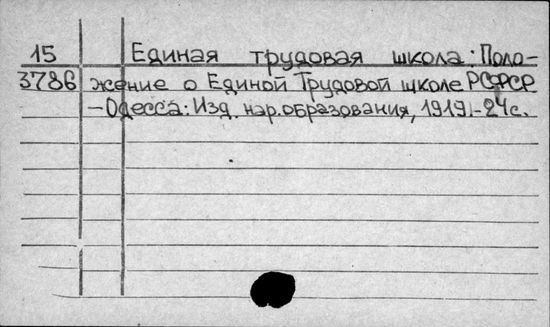 15 Единая трудовая школа: Поло-
3786 жение о Единой Трудовой школе РСФСР
-Одесса: Изд. нар. образования, 1919.-24с.